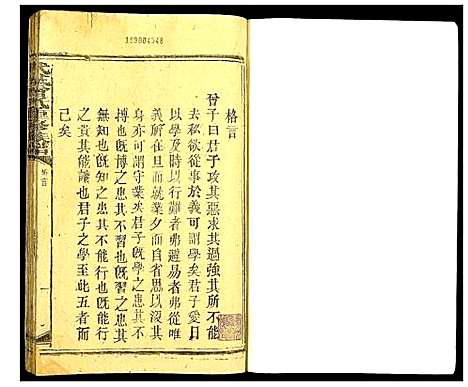 159004348
格言
曾子曰君子攻其惡求其過強其所不能
去私欲從事於義可謂學矣君子愛日
以學及時以行難者弗避易者弗從唯
義所在旦而就業夕而自省思以沒其
身亦可謂守業矣君子旣學之患其不
博也旣博之患其不習也旣習之患其
無知也旣知之患其不能行也旣能行
之貴其能讓也君子之學至此五者而
己矣
格言
一